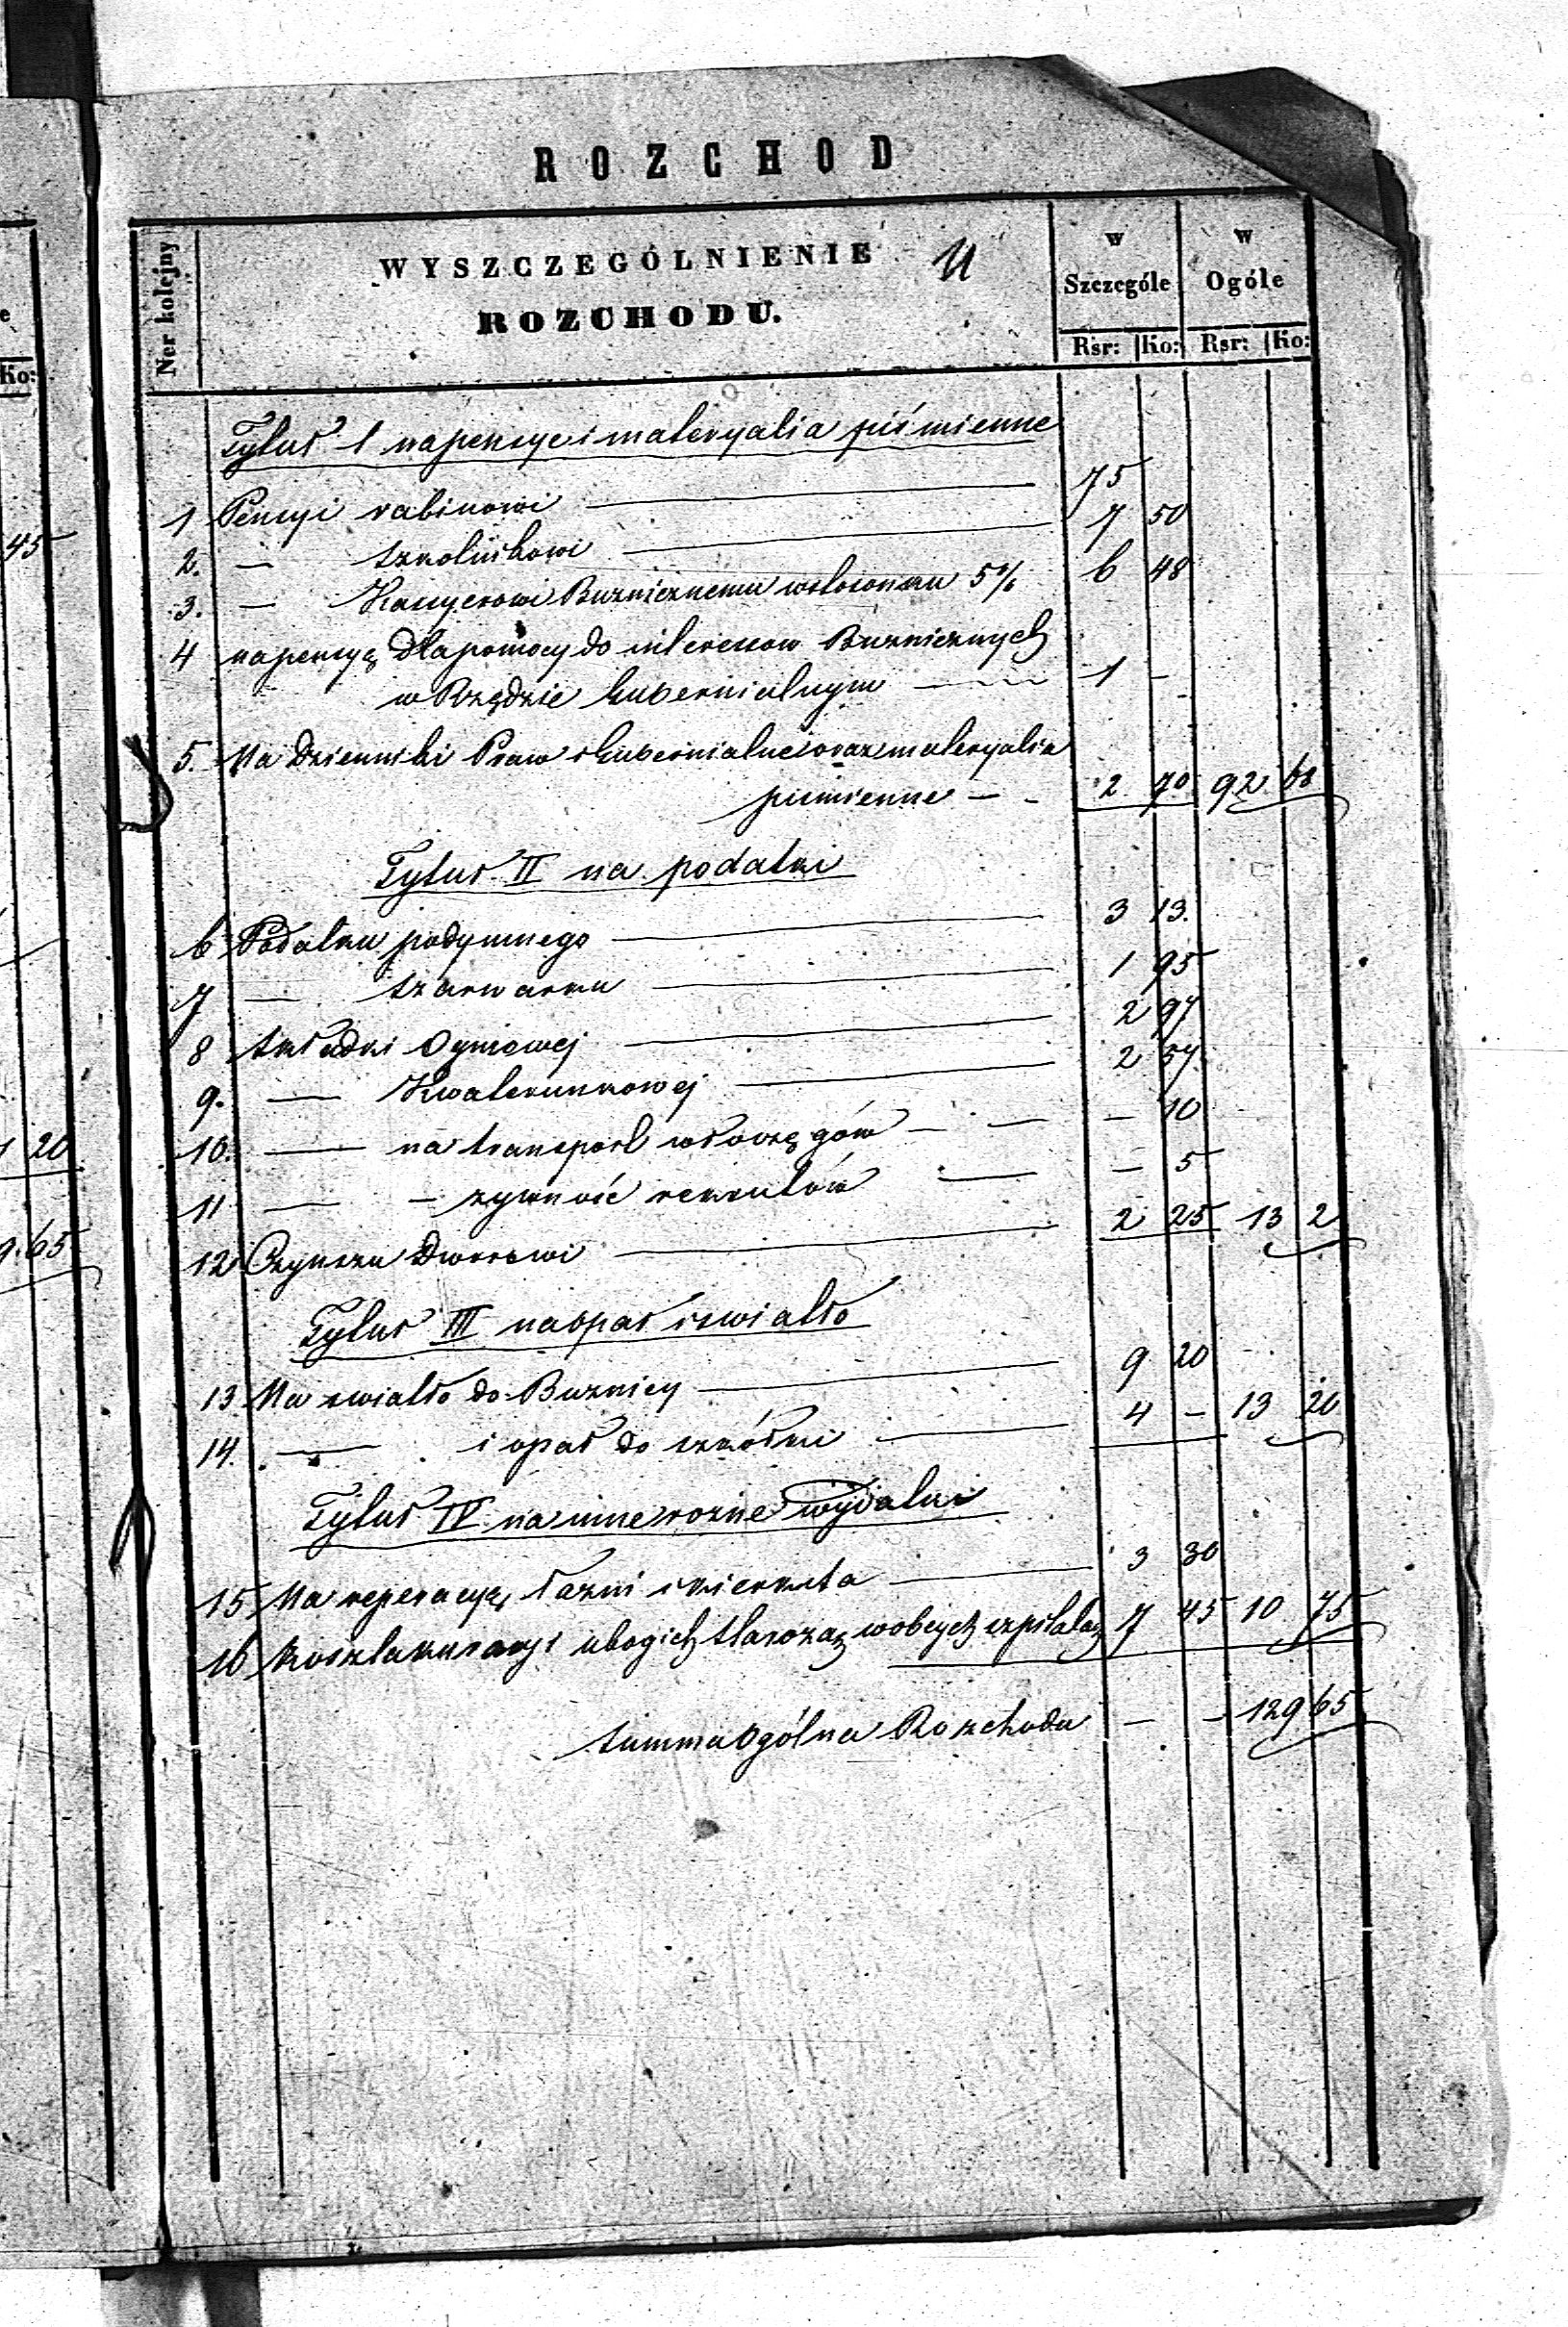 ROZCHOD
Ner kolejny
WYSZCZEGÓLNIENIE
ROZCHODU.
11
w Szczególe
w Ogóle
Rsr: Ko: Rsr: Ko:
Tytuł 1 na pensye i materyalia piśmienne
1 Pensyi rabinowi — 75
2. — Szkolnikowi — 7 50
3. — Kassyerowi Buzniczemu w stosonku 5% 6 48
4 na pensyę dla pomocy do interessow Buznicznych
w Rządzie Gubernialnym — 1 –
5. Na Dzienniki Praw i Gubernialne oraz materyalia
pismienne – - 2 70 92 68
Tytuł II na podatki
6 Podatku podymnego — 3 13.
7 — Szarwarku — 1 95
8 Składki Ogniowej — 2 97
9. — Kwaterunkowej — 2 57.
10. — na transport włoczęgów – — – 10
11 — – zywność rekrutów — – 5
12 Czynszu Dworowi — 2 25 13 2
Tytuł III na opał i swiatło
13 Na swiatło do Buznicy — 9 20
14. — i opał do szkółki — 4 – 13 20
Tytuł IV na inne rozne wydatki
15 Na reperacyę łazni i kierkuta — 3 30
16 Koszta kuracyi ubogich starozaą w obcych szpitalaą 7 45 10 75
Summa Ogólna Rozchodu – – 129 65
Ko:
45
20
9.65